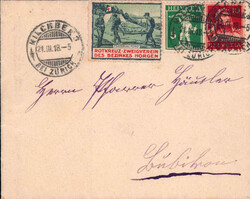 KILCHBERG
21.III.18.-5
BEI ZÜRICH
ROTKREUZ-ZWEIGVEREIN
DES BEZIRKES HORGEN
HELVETIA
ZÜRICH
Herrn Pfarrer Häusler
Bubikon